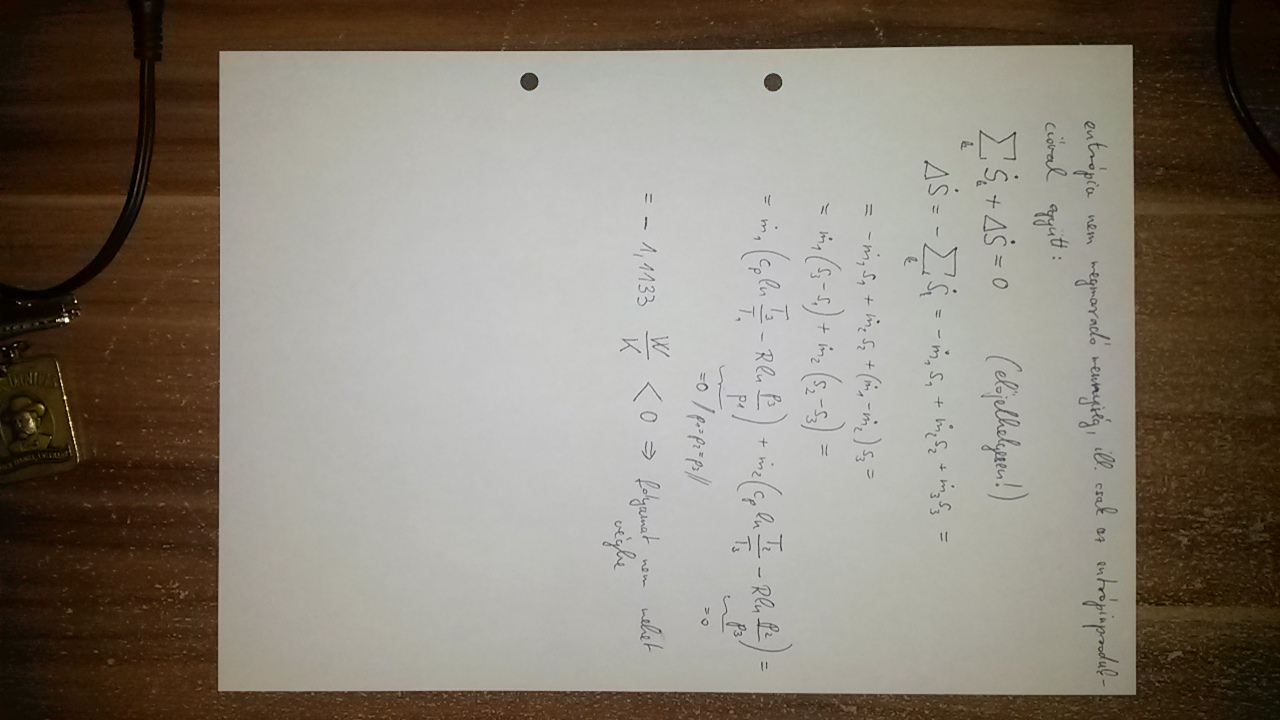 entrópia nem megmaradó mennyiség, ill. csak az entrópiaproduk-
cióval együtt:
∑ₖ Ṡₖ + ΔṠ = 0 (előjelhelyesen!)
ΔṠ = - ∑ₖ Ṡᵢ = - ṁ₁s₁ + ṁ₂s₂ + ṁ₃s₃ =
= - ṁ₁s₁ + ṁ₂s₂ + (ṁ₁ - ṁ₂) s₃ =
= ṁ₁ (s₃ - s₁) + ṁ₂ (s₂ - s₃) =
= ṁ₁ (cₚ ln T₃/T₁ - R ln p₃/p₁) + ṁ₂ (cₚ ln T₂/T₃ - R ln p₂/p₃) =
=0 /p₁=p₂=p₃// =0
= - 1,1133 W/K < 0 ⇒ folyamat nem mehet
végbe